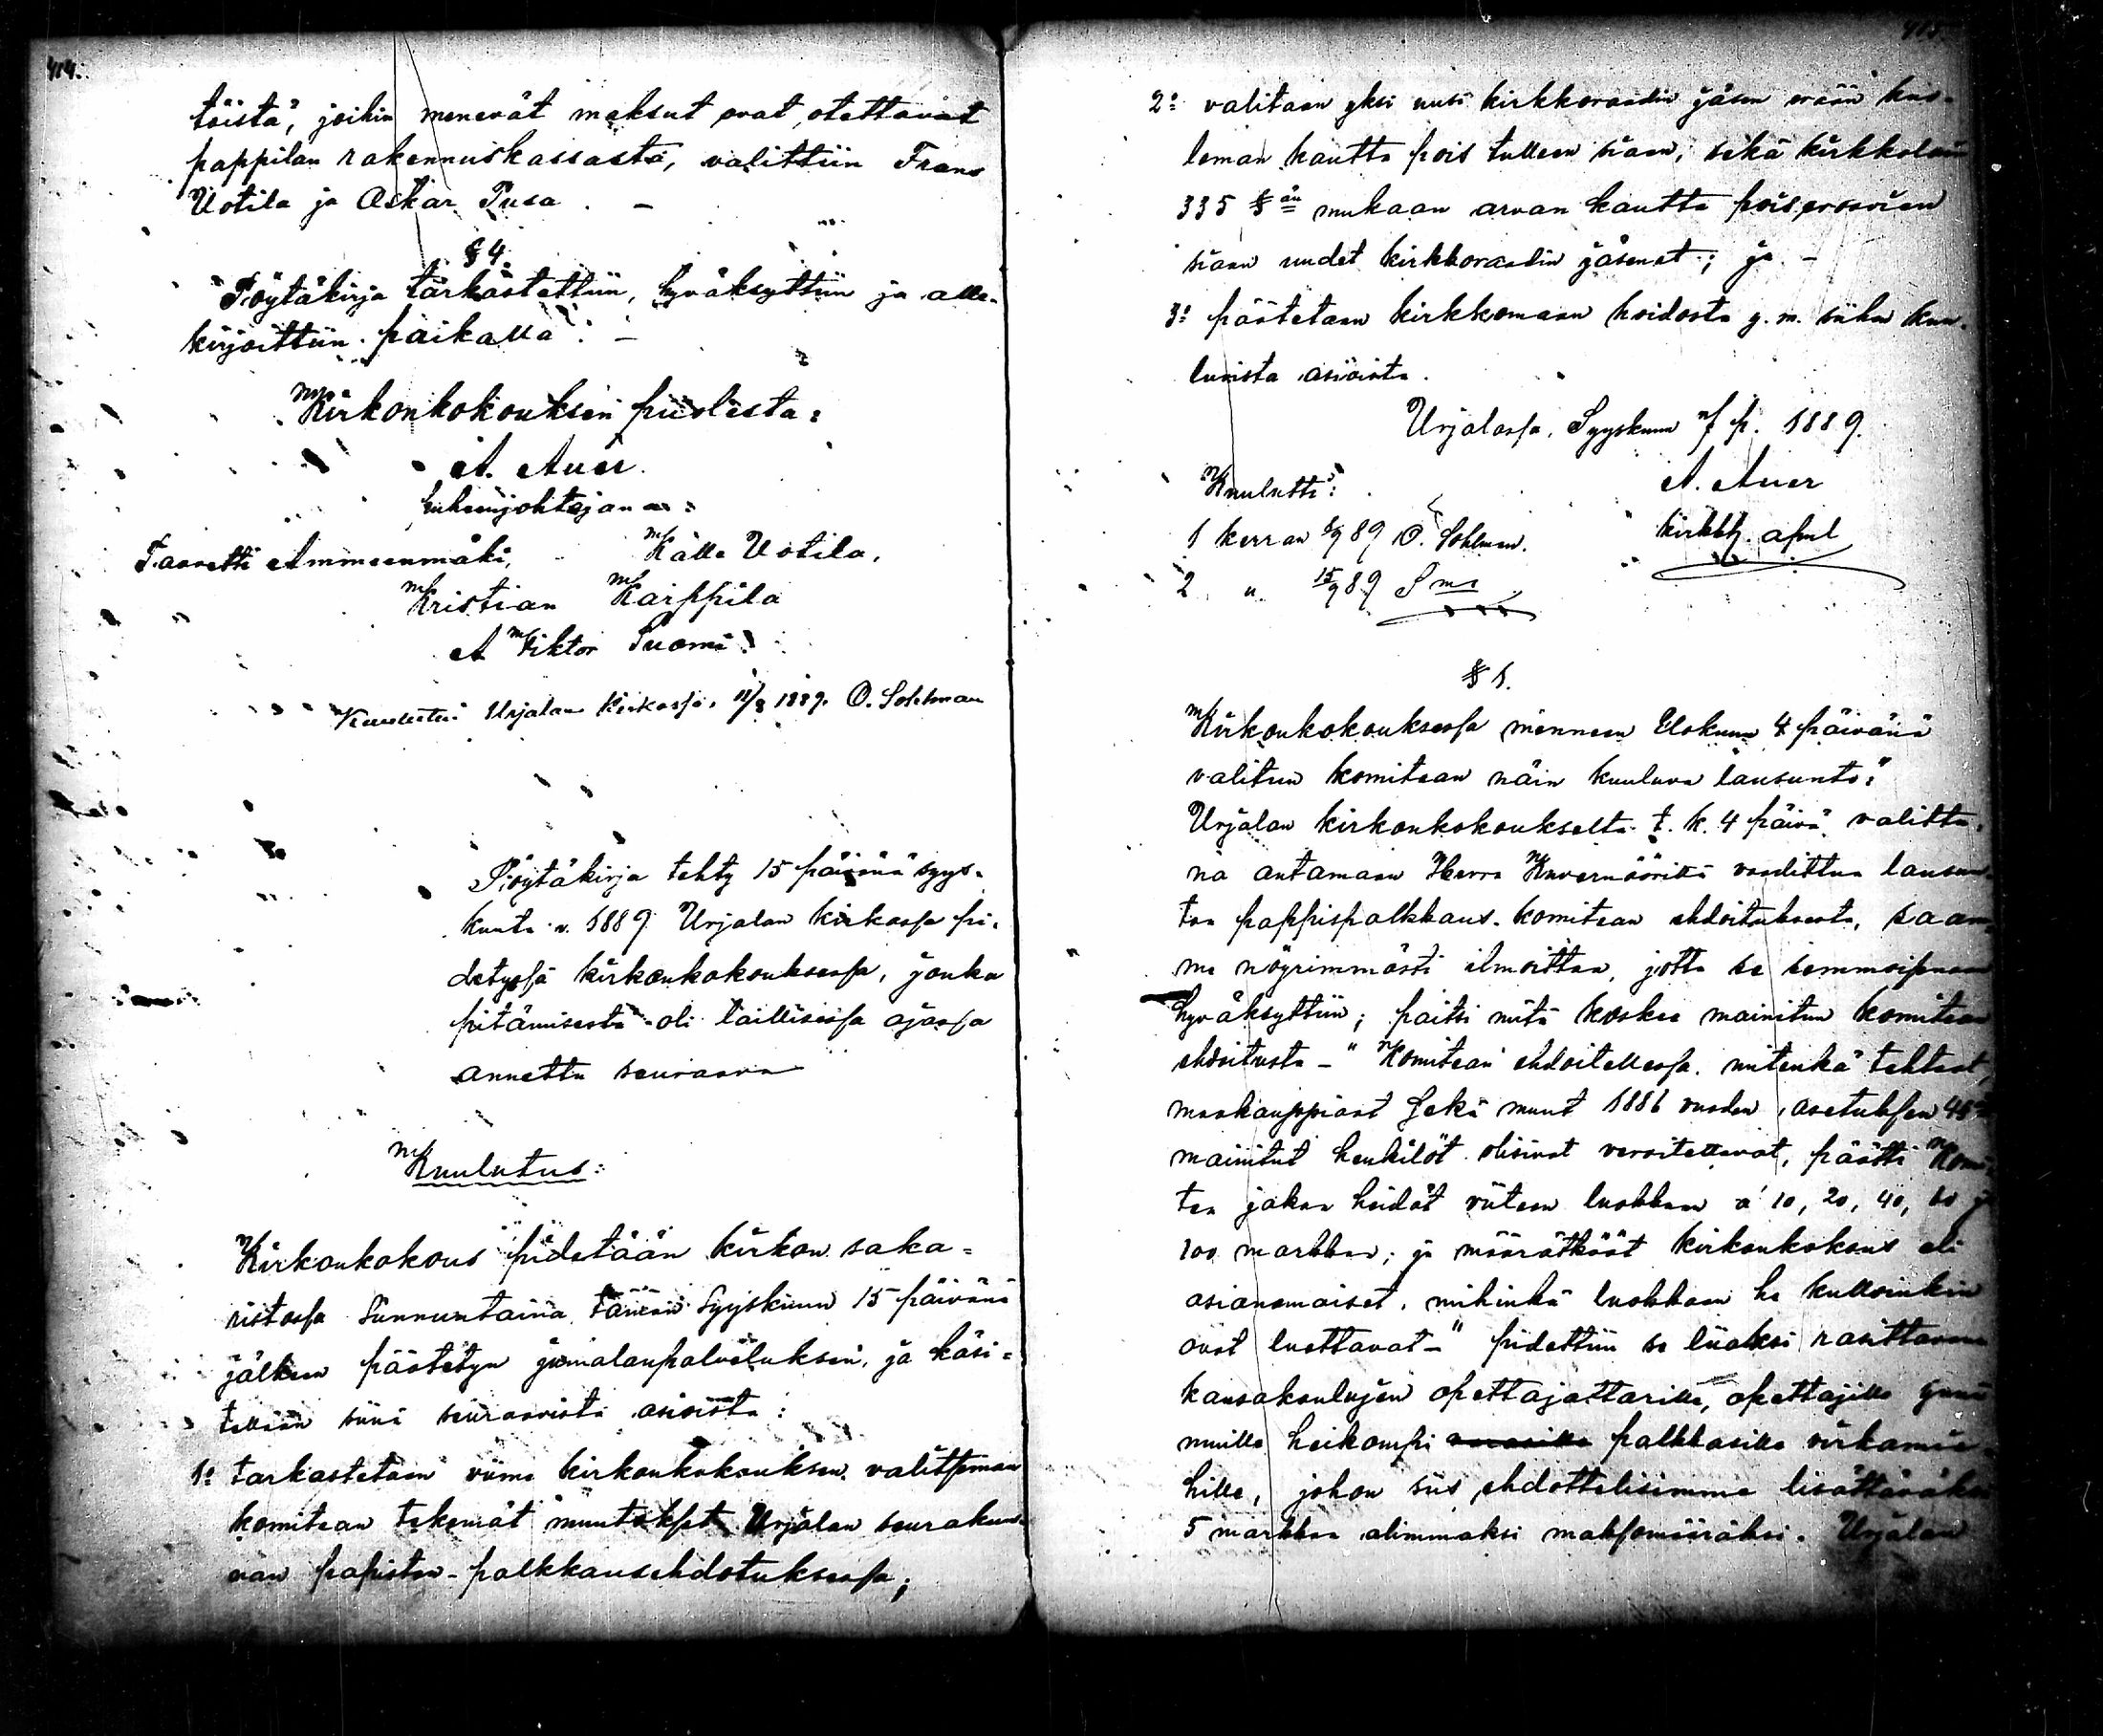 414.
töistä, joihin menevät maksut ovat otettavat
pappilan rakennuskassasta, valittiin Frans
Uotila ja Oskar Pusa. –
§ 4.
Pöytäkirja tarkastettiin, hyväksyttiin ja alle-
kirjoitettiin paikalla. –
Kirkonkokouksen puolesta:
A. Auer.
puheenjohtajana:
Taavetti Ammeenmäki, Kalle Uotila,
Kristian Karppila
A Viktor Suomi.
Kuulutettu Urjalan kirkossa, 11/8 1889. O. Sohlman
Pöytäkirja tehty 15 päivänä syys-
kuuta v. 1889 Urjalan kirkossa pi-
detyssä kirkonkokouksessa, jonka
pitämisestä oli laillisessa ajassa
annettu seuraava
Kuulutus:
Kirkonkokous pidetään kirkon saka-
ristossa Sunnuntaina tämän Syyskuun 15 päivänä
jälkeen päätetyn jumalanpalveluksen, ja käsi-
tellään siinä seuraavista asioista:
1: tarkastetaan viime kirkonkokouksen valitseman
komitean tekemät muutokset Urjalan seurakun-
nan papiston-palkkausehdotuksessa;
415.
2: valitaan yksi uusi kirkkoraadin jäsen erään kuo-
leman kautta pois tulleen siaan, sekä kirkkolain
335 §:än mukaan arvan kautta pois eroavien
siaan uudet kirkkoraadin jäsenet; ja –
3: päätetään kirkkomaan hoidosta y. m. siihen kuu-
luvista asioista.
Urjalassa, Syyskuun 7 p. 1889.
Kuulutti: A. Auer
1 kerran 8/9 89 O. Sohlman. kirkkh. apul
2 " 15/9 89 Sma
§ 1.
Kirkonkokouksessa menneen Elokuun 4 päivänä
valitun komitean näin kuuluva lausunto: "
Urjalan kirkonkokoukselta t. k. 4 päivä valittu-
na antamaan Herra Kuvernöörille vaadittua lausun-
toa pappispalkkaus-komitean ehdoituksesta, saam-
me nöyrimmästi ilmoittaa, jotta se semmoisenaan
hyväksyttiin; paitsi mitä koskee mainitun komitean
ehdoitusta – " Komitean ehdoitellessa, mitenkä tehtaat,
maakauppiaat sekä muut 1886 vuoden asetuksen 4§
mainitut henkilöt olisivat veroitettavat, päätti Komi-
tea jakaa heidät viiteen luokkaan á 10, 20, 40, 60 ja
100 markkaa; ja määrätkööt kirkonkokous eli
asianomaiset, mihinkä luokkaan he kulloinkin
ovat luettavat – " pidettiin se liiaksi rasittavana
kansakoulujen opettajattarille, opettajille ynnä
muille heikompi palkkasille virkamie-
hille, johon siis ehdottelisimme lisättäväksi
5 markkaa alimmaksi maksomääräksi. Urjalan